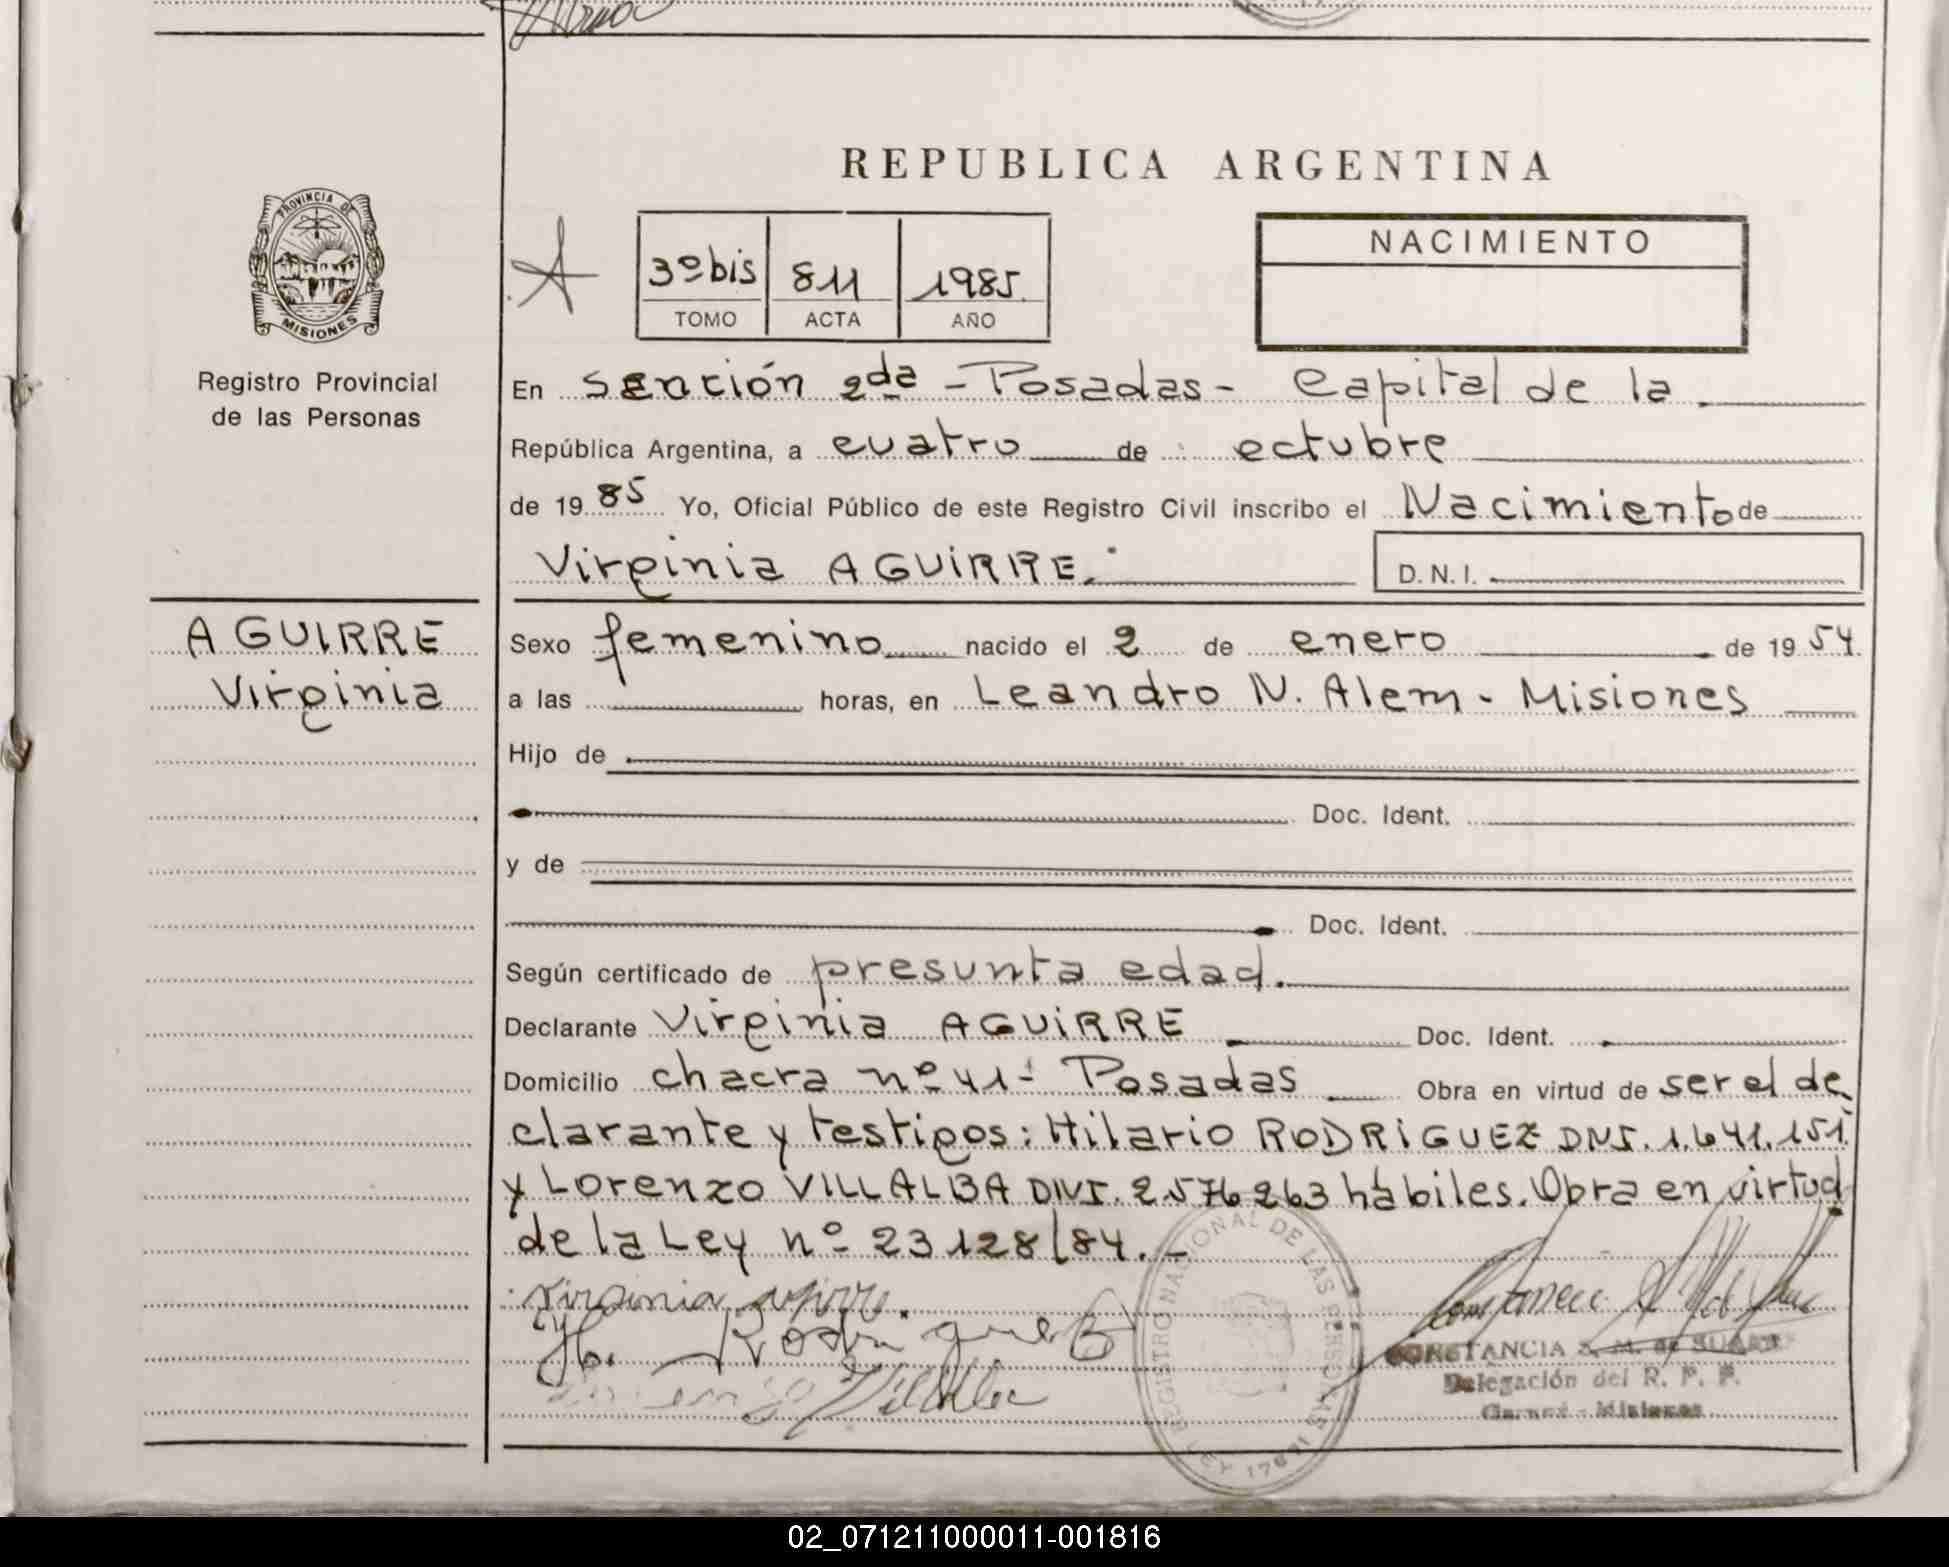 REPUBLICA ARGENTINA
PROVINCIA DE
MISIONES
Registro Provincial
de las Personas
3º bis 811 1985
TOMO ACTA AÑO
NACIMIENTO
En Sección 2da - Posadas - Capital de la
República Argentina, a cuatro de octubre
de 1985 Yo, Oficial Público de este Registro Civil inscribo el Nacimiento de
Virginia AGUIRRE. D.N.I.
AGUIRRE
Virginia
Sexo femenino nacido el 2 de enero de 1954.
a las horas, en Leandro N. Alem - Misiones
Hijo de
Doc. Ident.
y de
Doc. Ident.
Según certificado de presunta edad.
Declarante Virginia AGUIRRE Doc. Ident.
Domicilio chacra nº 41 - Posadas Obra en virtud de ser el de
clarante y testigos: Hilario RODRIGUEZ DNI. 1.641.151
y Lorenzo VILLALBA DNI. 2.576263 hábiles. Obra en virtud
de la Ley nº 23128/84. -
Virginia
H. Rodriguez
Villalba
REGISTRO NACIONAL DE LAS PERSONAS
LEY 17671
CONSTANCIA S. M. de SUAREZ
Delegación del R. P. P.
Misiones
02_071211000011-001816